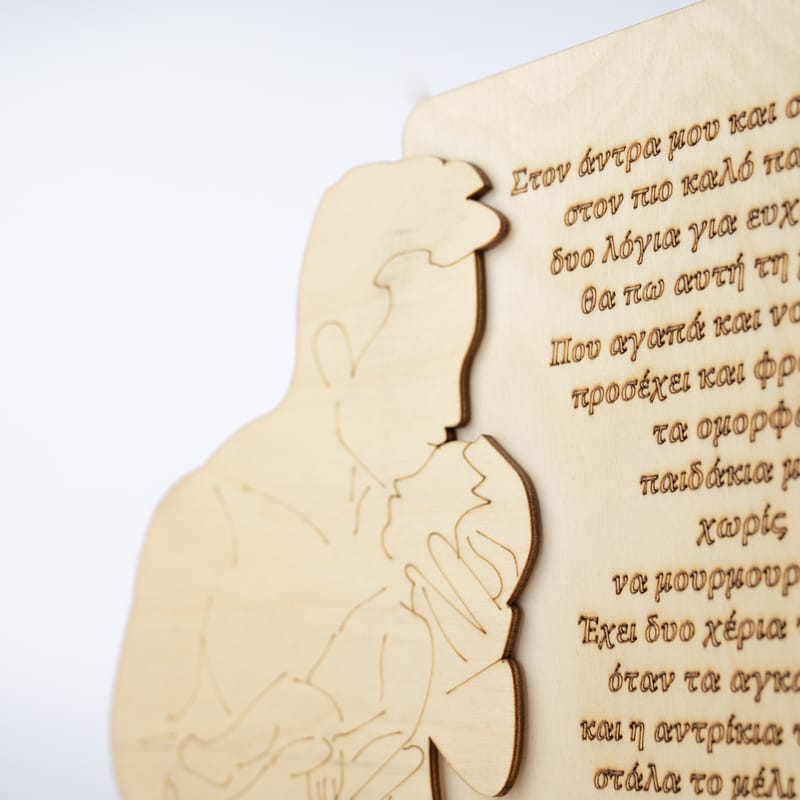 Στον άντρα μου και σ
στον πιο καλό πα
δυο λόγια για ευχ
θα πω αυτή τη
Που αγαπά και να
προσέχει και φρο
τα ομορφ
παιδάκια μ
χωρίς
να μουρμουρ
Έχει δυο χέρια
όταν τα αγκα
και η αντρίκια
στάλα το μέλι